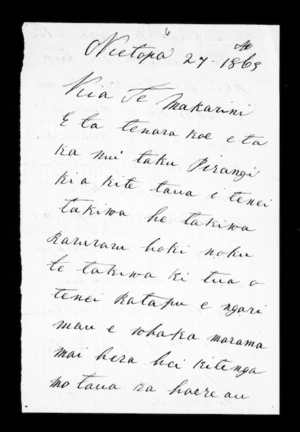 Nuetopa 27 - 1869
Kia Te Makarini
E ta tenara koe e ta
ka nui taku Pirangi
kia kite taua i tenei
takiwa he takiwa
raruraru hoki noku
te takiwa ki tua o
tenei Ratapu e ngari
mau e whaka marama
mai hera hei kitenga
mo taua ka haere au